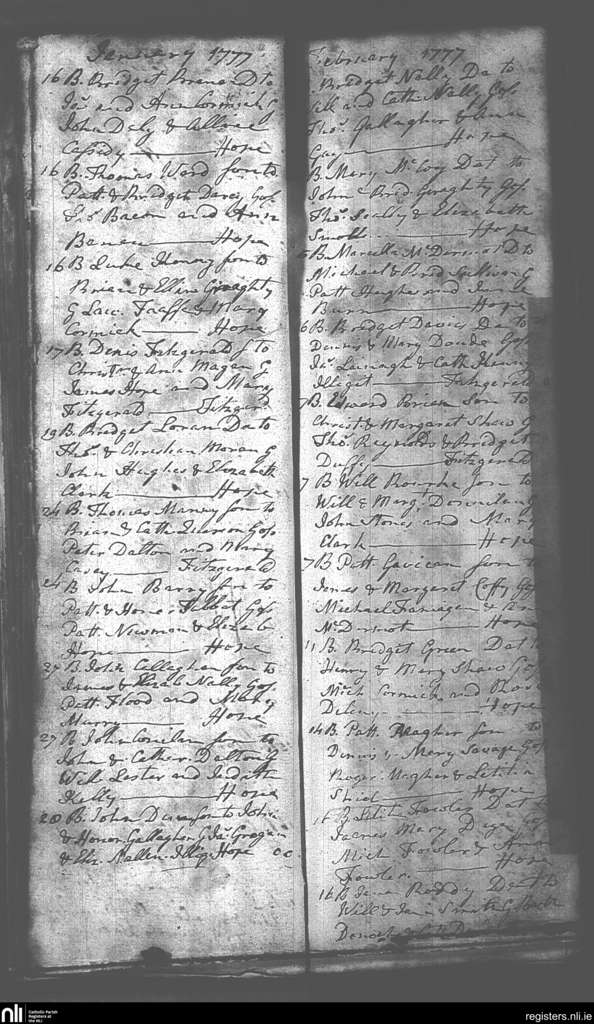 January 1777
16 B. Bridget Da to
Jas and Ann Cormick G
John Daly & Allice
Cassidy Hope
16 B. Thomas Ward son to
Patt & Bridget Davis Gos
Bacon and Ann
Hope
16 B Luke Henry son to
Brian & Elin Geraghty
G Law. Taaffe & Mary
Cormick Hope
17 B. Denis Fitzgerald S to
Christr & Ann Magan G
James Hope and Mary
Fitzgerald Fitzgerd
19 B. Bridget Loran Da to
Thos & Christian Moran G
John Hughes & Elizabeth
Clark Hope
24 B. Thomas son to
Brian & Cath Gos
Peter Dalton and Mary
Casey Fitzgerald
24 B John Barry son to
Patt & Honor Talbot Gos
Patt Newman & Elizabe
Hope Hope
27 B. John Callaghan son to
James & Elizab Nally Gos
Patt Flood and Mary
Murry Hope
27 B John son to
John & Cather. Dalton G
Will Lester and Judith
Kelly Hope
28 B. John son to John
& Honor Gallagher G Jas
& Eliz. Nallen. Illig Hope
February 1777
Bridget Nally Da to
Will and Cath Nally Gos
Thos Gallagher & Anne
Gay Hope
B. Mary McCoy Dat to
John & Brid. Geraghty Gos
Thos Scally & Elizabeth
Small Hope
5 B. Marcella McDermot D to
Michael & Brid Sullivan G
Patt Hughes and Jane
Burn Hope
6 B. Bridget Davies Da to
Dennis & Mary Gos
Jas & Cath
Illeget Fitzgerald
7 B. Edward Son to
Christ & Margaret Shaw G
Thos Reynolds & Bridget
Duffy Fitzgerald
7 B Will Rourke son to
Will & Marg.
John Jones and Mary
Clark Hope
7 B Patt Gavican son to
James & Margaret Coffy Gos
Michael Flanagan & An
McDermot Hope
11 B. Bridget Green Dat to
Henry & Mary Shaw Gos
Mich Cormick and Rose
Hope
14 B. Patt. Meagher son to
Dennis & Mary Savage Gos
Roger Meagher & Letitia
Hope
16 B. Letitia Fowler Dat to
James Mary Gos
Mich Fowler & Anne
Fowler. Hope
16 B Jane Reddy Dat to
Will & Jane Smith G
nli
Catholic Parish
Registers at
the NLI
registers.nli.ie